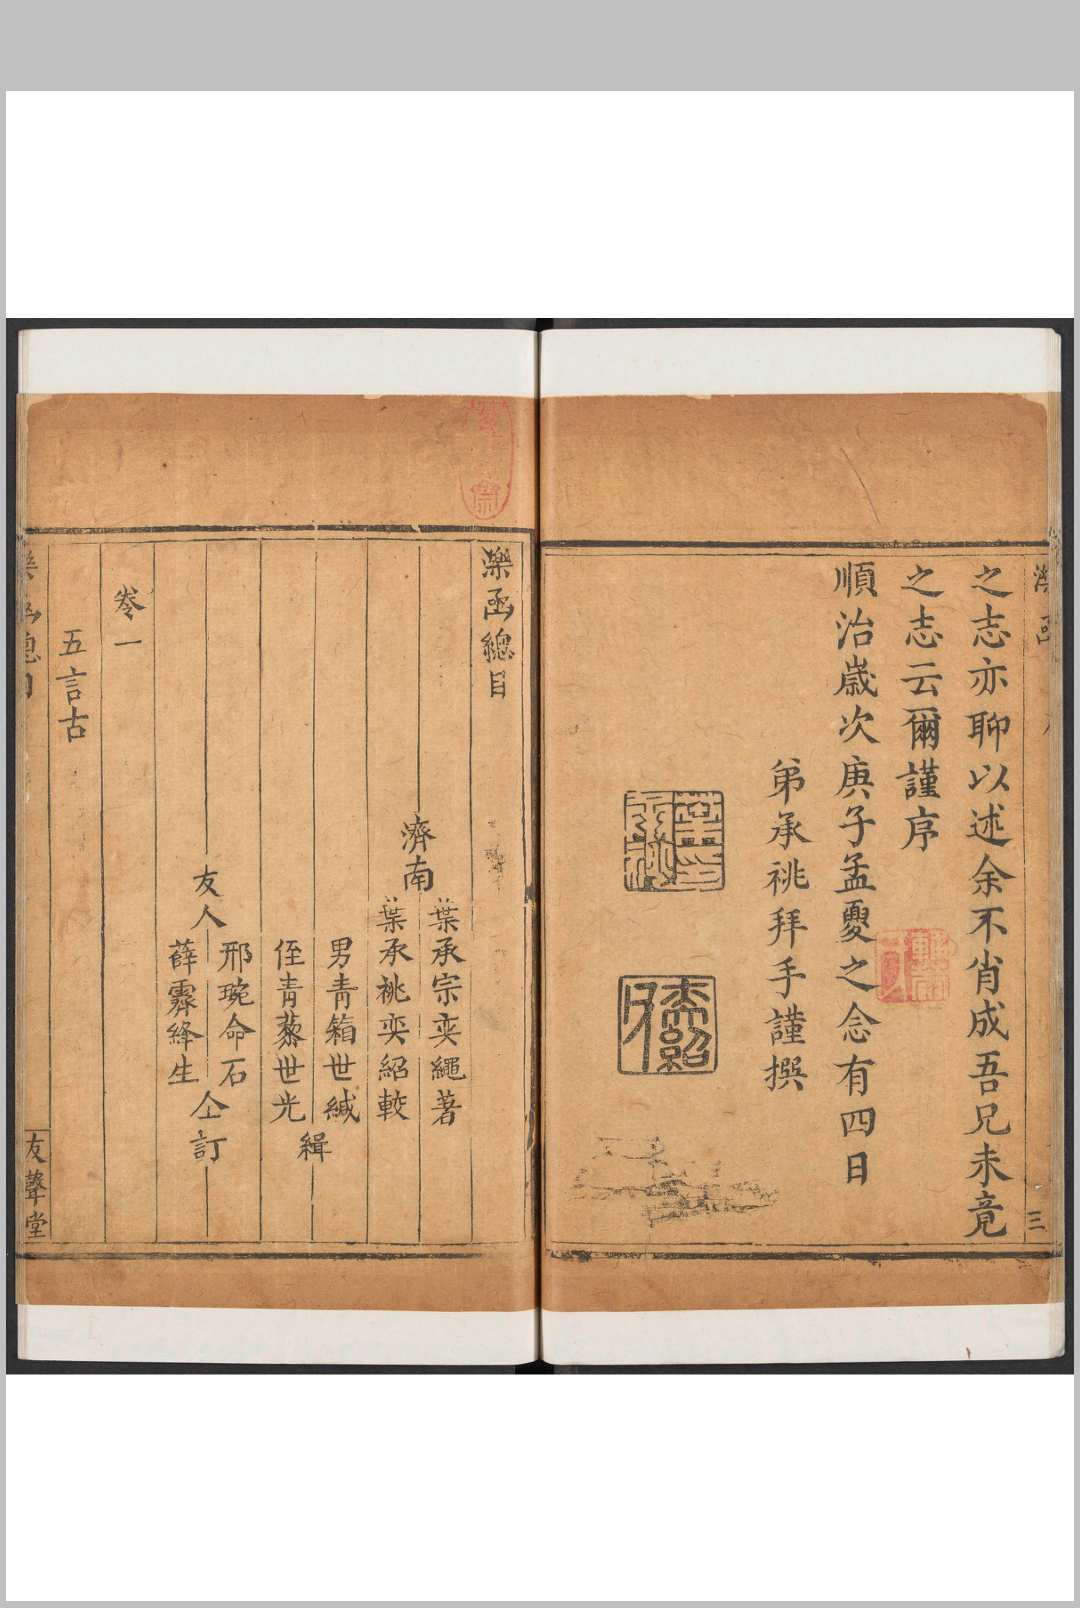 之志亦聊以述余不肖成吾兄未竟
之志云爾謹序
順治歲次庚子孟夏之念有四日
弟承祧拜手謹撰
三
濼函總目
濟南
葉承宗奕繩著
葉承祧奕紹較
男青箱世緘
侄青藜世光
緝
友人
邢琬命石
薛霽絳生
仝訂
卷一
五言古
友聲堂